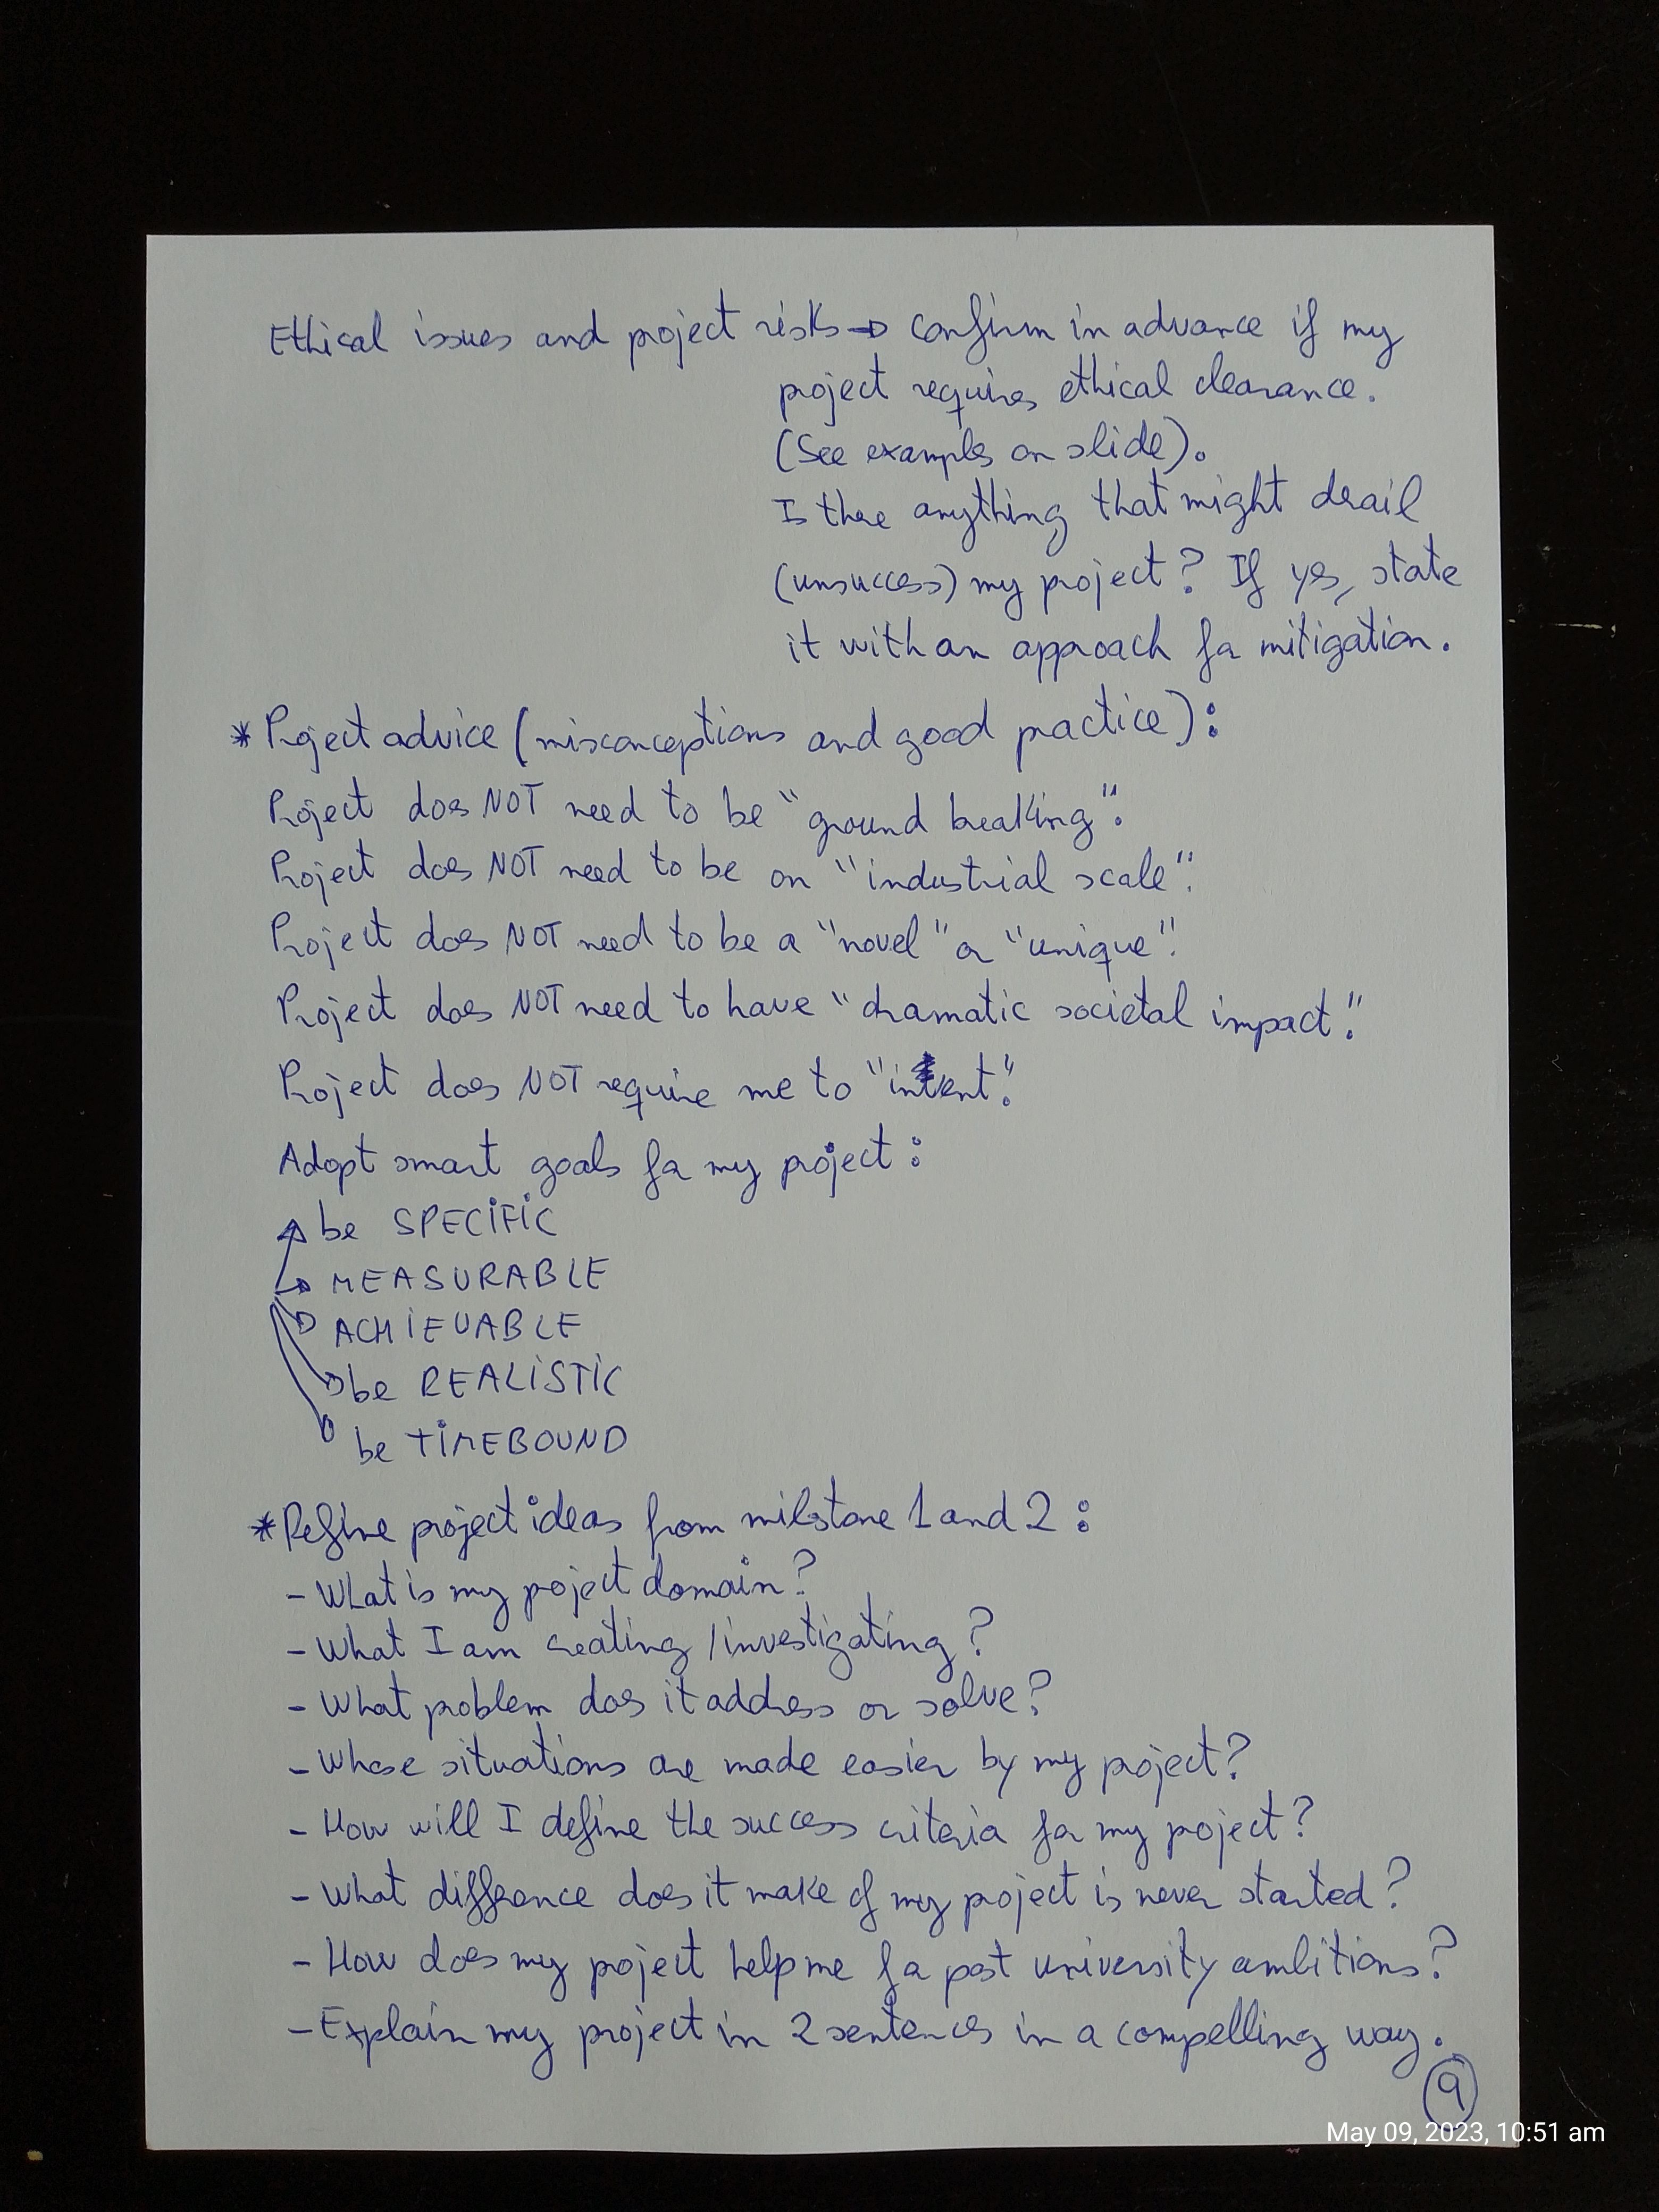 Ethical issues and project risks → confirm in advance if my
project requires ethical clearance.
(See examples on slide).
Is there anything that might derail
(unsuccess) my project? If yes, state
it with an approach for mitigation.
* Project advice (misconceptions and good practice):
Project does NOT need to be "ground breaking".
Project does NOT need to be on "industrial scale".
Project does NOT need to be a "novel" or "unique".
Project does NOT need to have "dramatic societal impact".
Project does NOT require me to
Adopt smart goals for my project:
be SPECIFIC
MEASURABLE
ACHIEVABLE
be REALISTIC
be TIMEBOUND
* Refine project ideas from milestone 1 and 2:
- What is my project domain?
- What I am creating / investigating?
- What problem does it address or solve?
- Whose situations are made easier by my project?
- How will I define the success criteria for my project?
- What difference does it make if my project is never started?
- How does my project help me for post university ambitions?
- Explain my project in 2 sentences in a compelling way.
9
May 09, 2023, 10:51 am